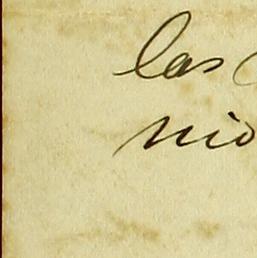 las
nio